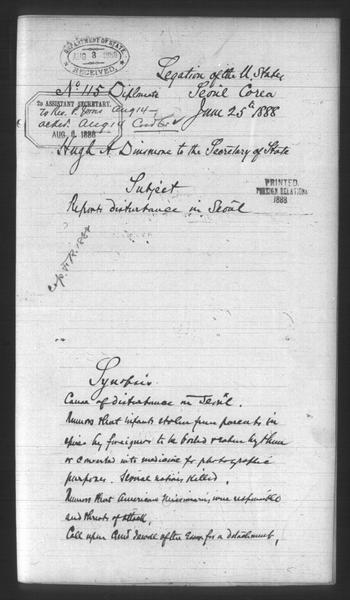 DEPARTMENT OF STATE
AUG 8 1888
RECEIVED.
Legation of the U. States
No 115 Diplomatic Seoul Corea
TO ASSISTANT SECRETARY.
AUG. 8. 1888
To Rev. Aug 14
ackd. Aug 14
June 25th 1888
Hugh A Dinsmore to the Secretary of State
Subject
PRINTED.
FOREIGN RELATIONS
1888
Reports disturbance in Seoul
Synopsis
Cause of disturbance in Seoul.
Rumors that infants stolen from parents in
by foreigners to be boiled & eaten by them
or converted into medicine for photographic
purposes. Several natives killed.
Rumors that American Missionaries were responsible
and threats of attack.
Call upon Comd of the Essex for a detachment.